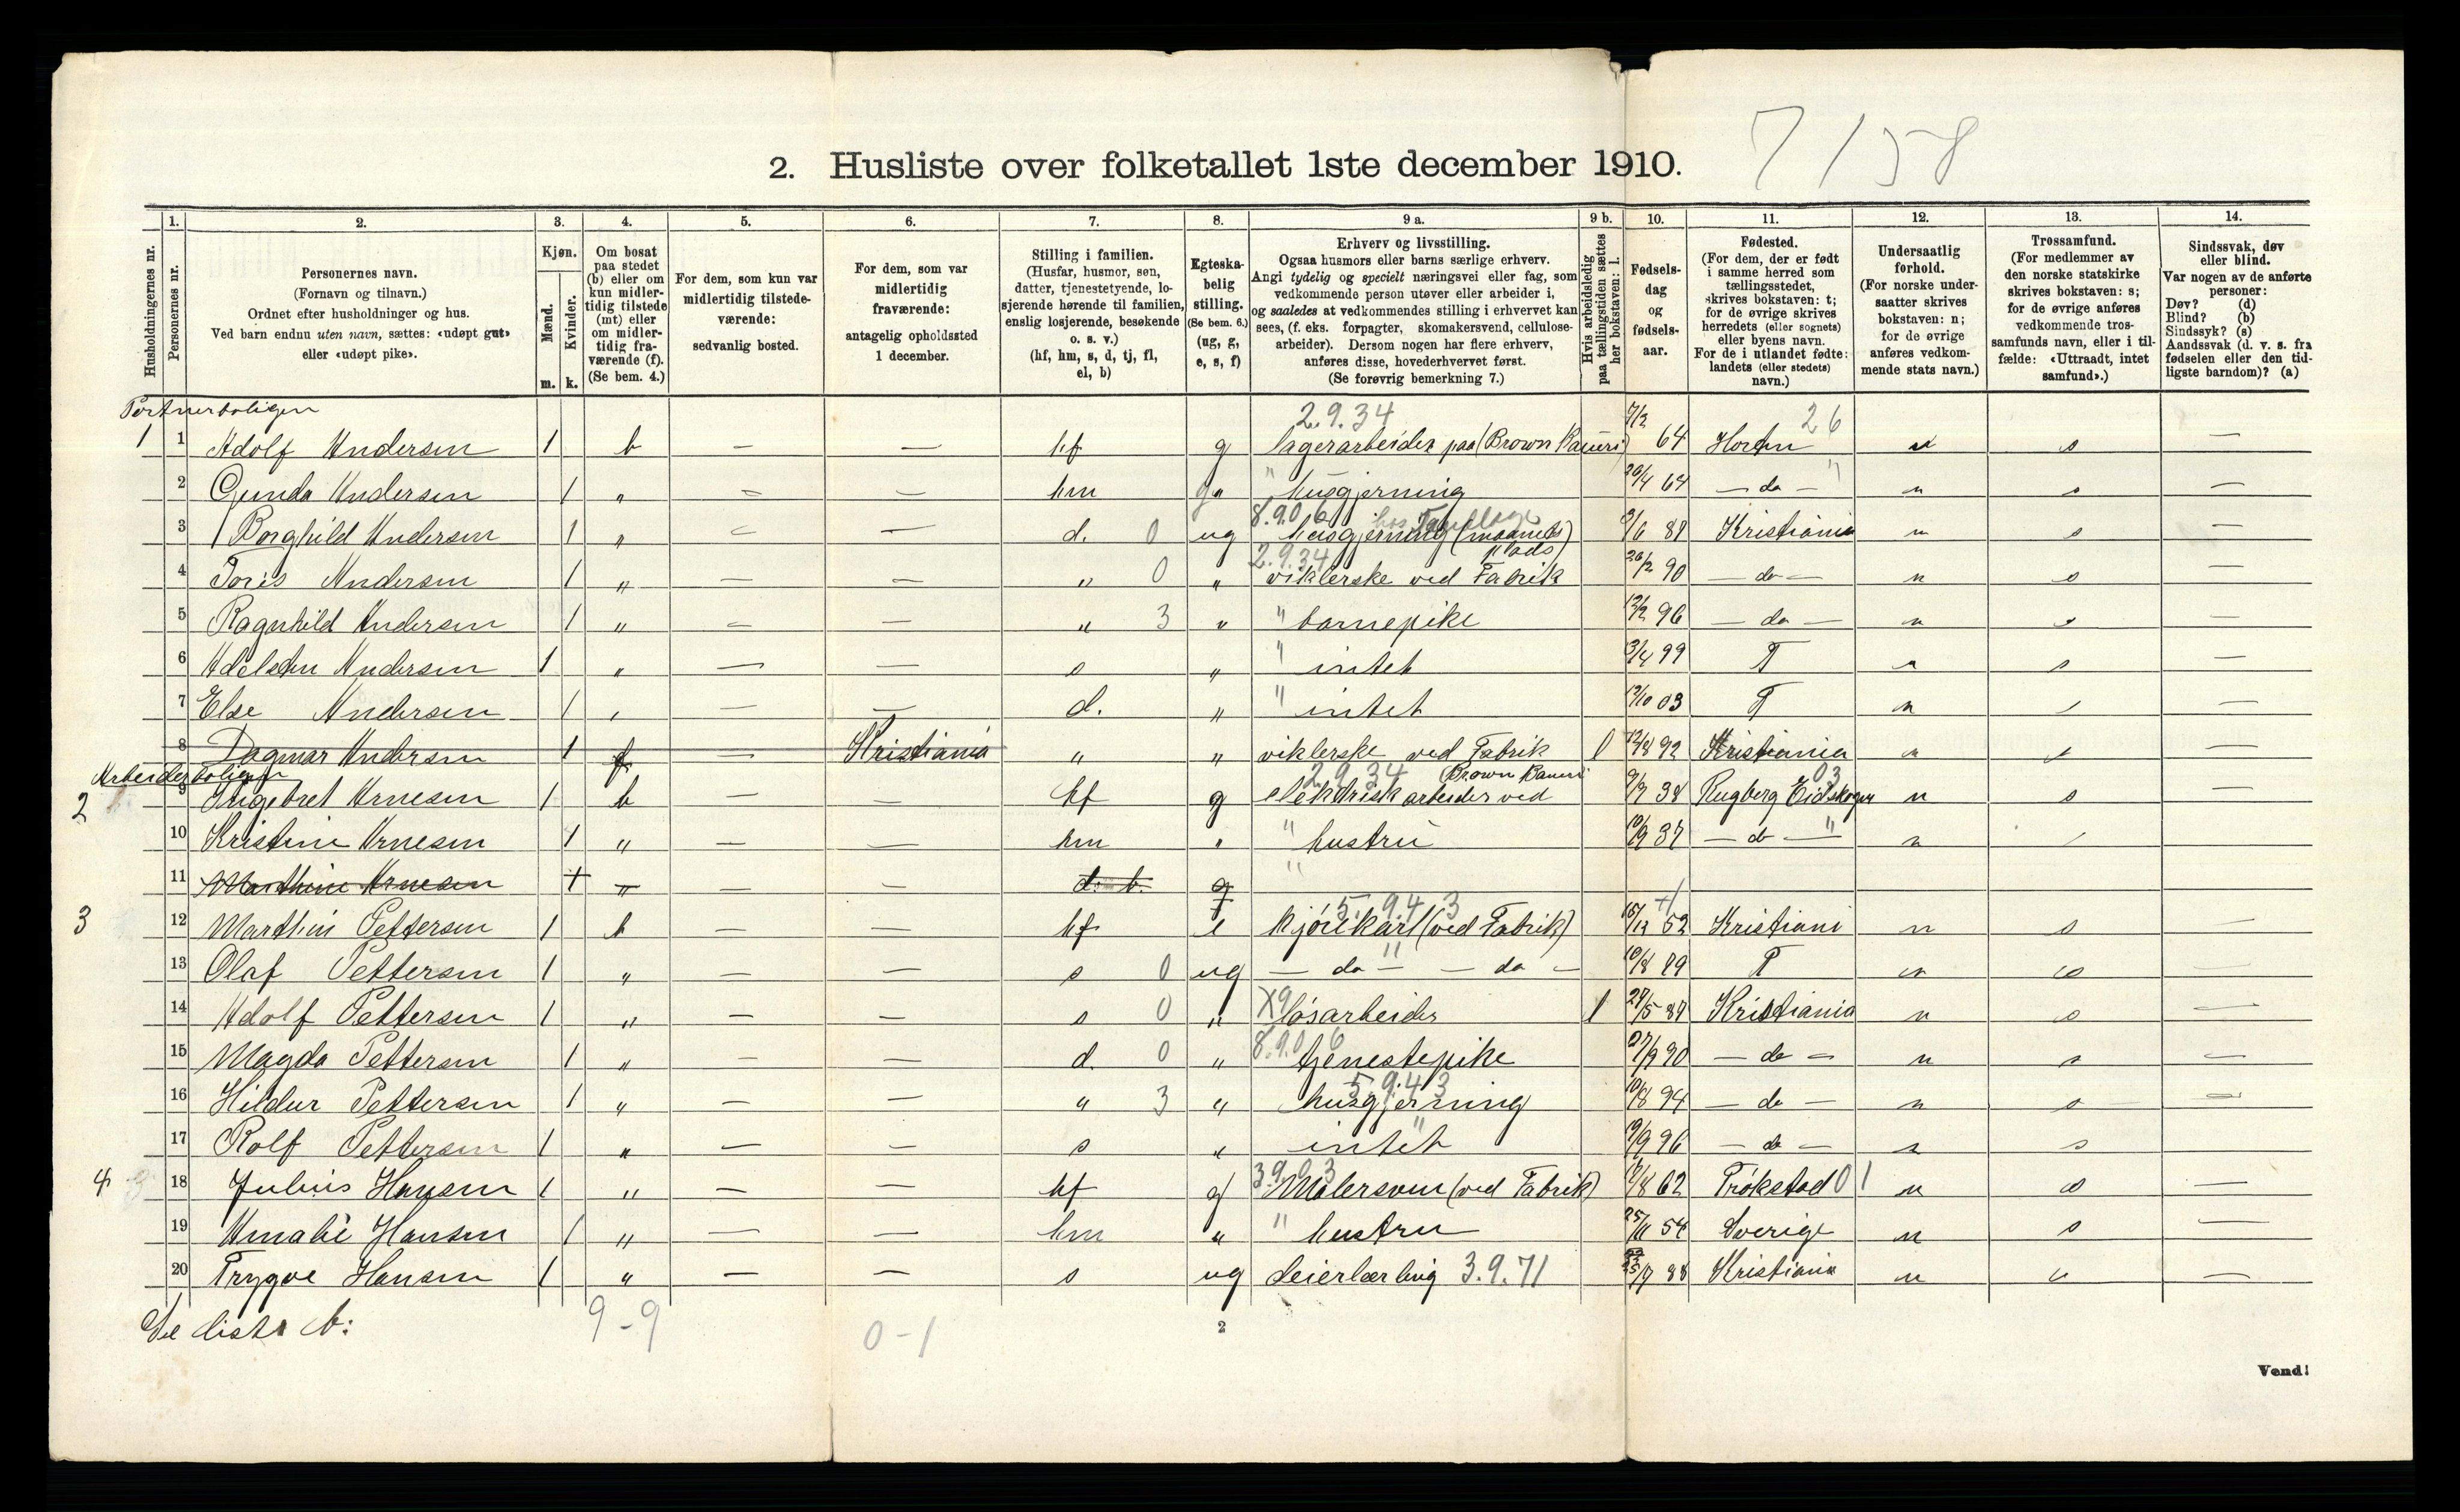 7/58
2. Husliste over folketallet 1ste december 1910.
Husholdningernes nr.
1. Personernes nr.
2. Personernes navn. (Fornavn og tilnavn.) Ordnet efter husholdninger og hus. Ved barn endnu uten navn, sættes: «udøpt gut» eller «udøpt pike».
3. Kjøn. Mænd. m. Kvinder. k.
4. Om bosat paa stedet (b) eller om kun midlertidig tilstede (mt) eller om midlertidig fraværende (f). (Se bem. 4.)
5. For dem, som kun var midlertidig tilstedeværende: sedvanlig bosted.
6. For dem, som var midlertidig fraværende: antagelig opholdssted 1 december.
7. Stilling i familien. (Husfar, husmor, søn, datter, tjenestetyende, losjerende hørende til familien, enslig losjerende, besøkende o. s. v.) (hf, hm, s, d, tj, fl, el, b)
8. Egteskabelig stilling. (Se bem. 6.) (ug, g, e, s, f)
9 a. Erhverv og livsstilling. Ogsaa husmors eller barns særlige erhverv. Angi tydelig og specielt næringsvei eller fag, som vedkommende person utøver eller arbeider i, og saaledes at vedkommendes stilling i erhvervet kan sees, (f. eks. forpagter, skomakersvend, cellulosearbeider). Dersom nogen har flere erhverv, anføres disse, hovederhvervet først. (Se forøvrig bemerkning 7.)
9 b. Hvis arbeidsledig paa tællingstiden sættes her bokstaven: l.
10. Fødselsdag og fødselsaar.
11. Fødested. (For dem, der er født i samme herred som tællingsstedet, skrives bokstaven: t; for de øvrige skrives herredets (eller sognets) eller byens navn. For de i utlandet fødte: landets (eller stedets) navn.)
12. Undersaatlig forhold. (For norske undersaatter skrives bokstaven: n; for de øvrige anføres vedkommende stats navn.)
13. Trossamfund. (For medlemmer av den norske statskirke skrives bokstaven: s; for de øvrige anføres vedkommende trossamfunds navn, eller i tilfælde: «Uttraadt, intet samfund».)
14. Sindssvak, døv eller blind. Var nogen av de anførte personer: Døv? (d) Blind? (b) Sindssyk? (s) Aandssvak (d. v. s. fra fødselen eller den tidligste barndom)? (a)
Portnerboligen 2.9.34 26
1 1 Adolf Andersen 1 b — — hf g lagerarbeider paa (Brown Baueri) 7/2 64 Horten n s —
2 Gunda Andersen 1 " — — hm g " " husgjerning 20/4 64 — do — " n s —
8.9.0 6
3 Borghild Andersen 1 " — — d. 0 ug husgjerning (maaneds plads) 3/6 89 Kristiania n s —
2.9.34
4 Toris Andersen 1 " — — " 0 " viklerske ved Fabrik 26/2 90 — do — n s —
5 Ragnhild Andersen 1 " — — " 3 " " barnepike 12/2 96 — do — n s —
6 Adelsten Andersen 1 " — — s " " intet 3/4 99 T n s —
7 Else Andersen 1 " — — d. " " intet 12/10 03 T n s —
8 Dagmar Andersen 1 f — Kristiania " " viklerske ved Fabrik l 12/8 92 Kristiania n s —
Arbeiderboligen 2 9 34 (Brown Baueri 03
2 9 Ingebret Arnesen 1 b — — hf g elektrisk arbeider ved 9/7 38 Rugberg Eidskogen n s
10 Kristine Arnesen 1 " — — hm " " hustru 10/9 37 — do — " n s
11 Marthine Arnesen 1 " — — d. b. g "
5.9.4 3
3 12 Marthin Pettersen 1 b — — hf e kjørekarl (ved Fabrik) 15/12 52 Kristiani n s —
13 Olaf Pettersen 1 " — — s 0 ug — do — " — do — 10/8 89 T n s —
14 Adolf Pettersen 1 " — — s 0 " X9 løsarbeider l 27/5 87 Kristiania n s —
15 Magda Pettersen 1 " — — d. 0 " 8.9.0 6 tjenestepike 27/9 90 — do — n s —
5 9.4 3
16 Hildur Pettersen 1 " — — " 3 " husgjerning 10/8 94 — do — n s —
17 Rolf Pettersen 1 " — — s " intet 19/9 96 — do — n s
4 18 Julius Hansen 1 " — — hf g 3.9.0 3 Malersven (ved Fabrik) 10/8 62 Trøkstad 01 n s —
19 Amalie Hansen 1 " — — hm " " hustru 25/11 54 Sverige n s —
20 Trygve Hansen 1 " — — s ug Seierlærling 3.9.71 /7 88 Kristiania n s —
Se liste b: 9-9 0-1
2
Vend!